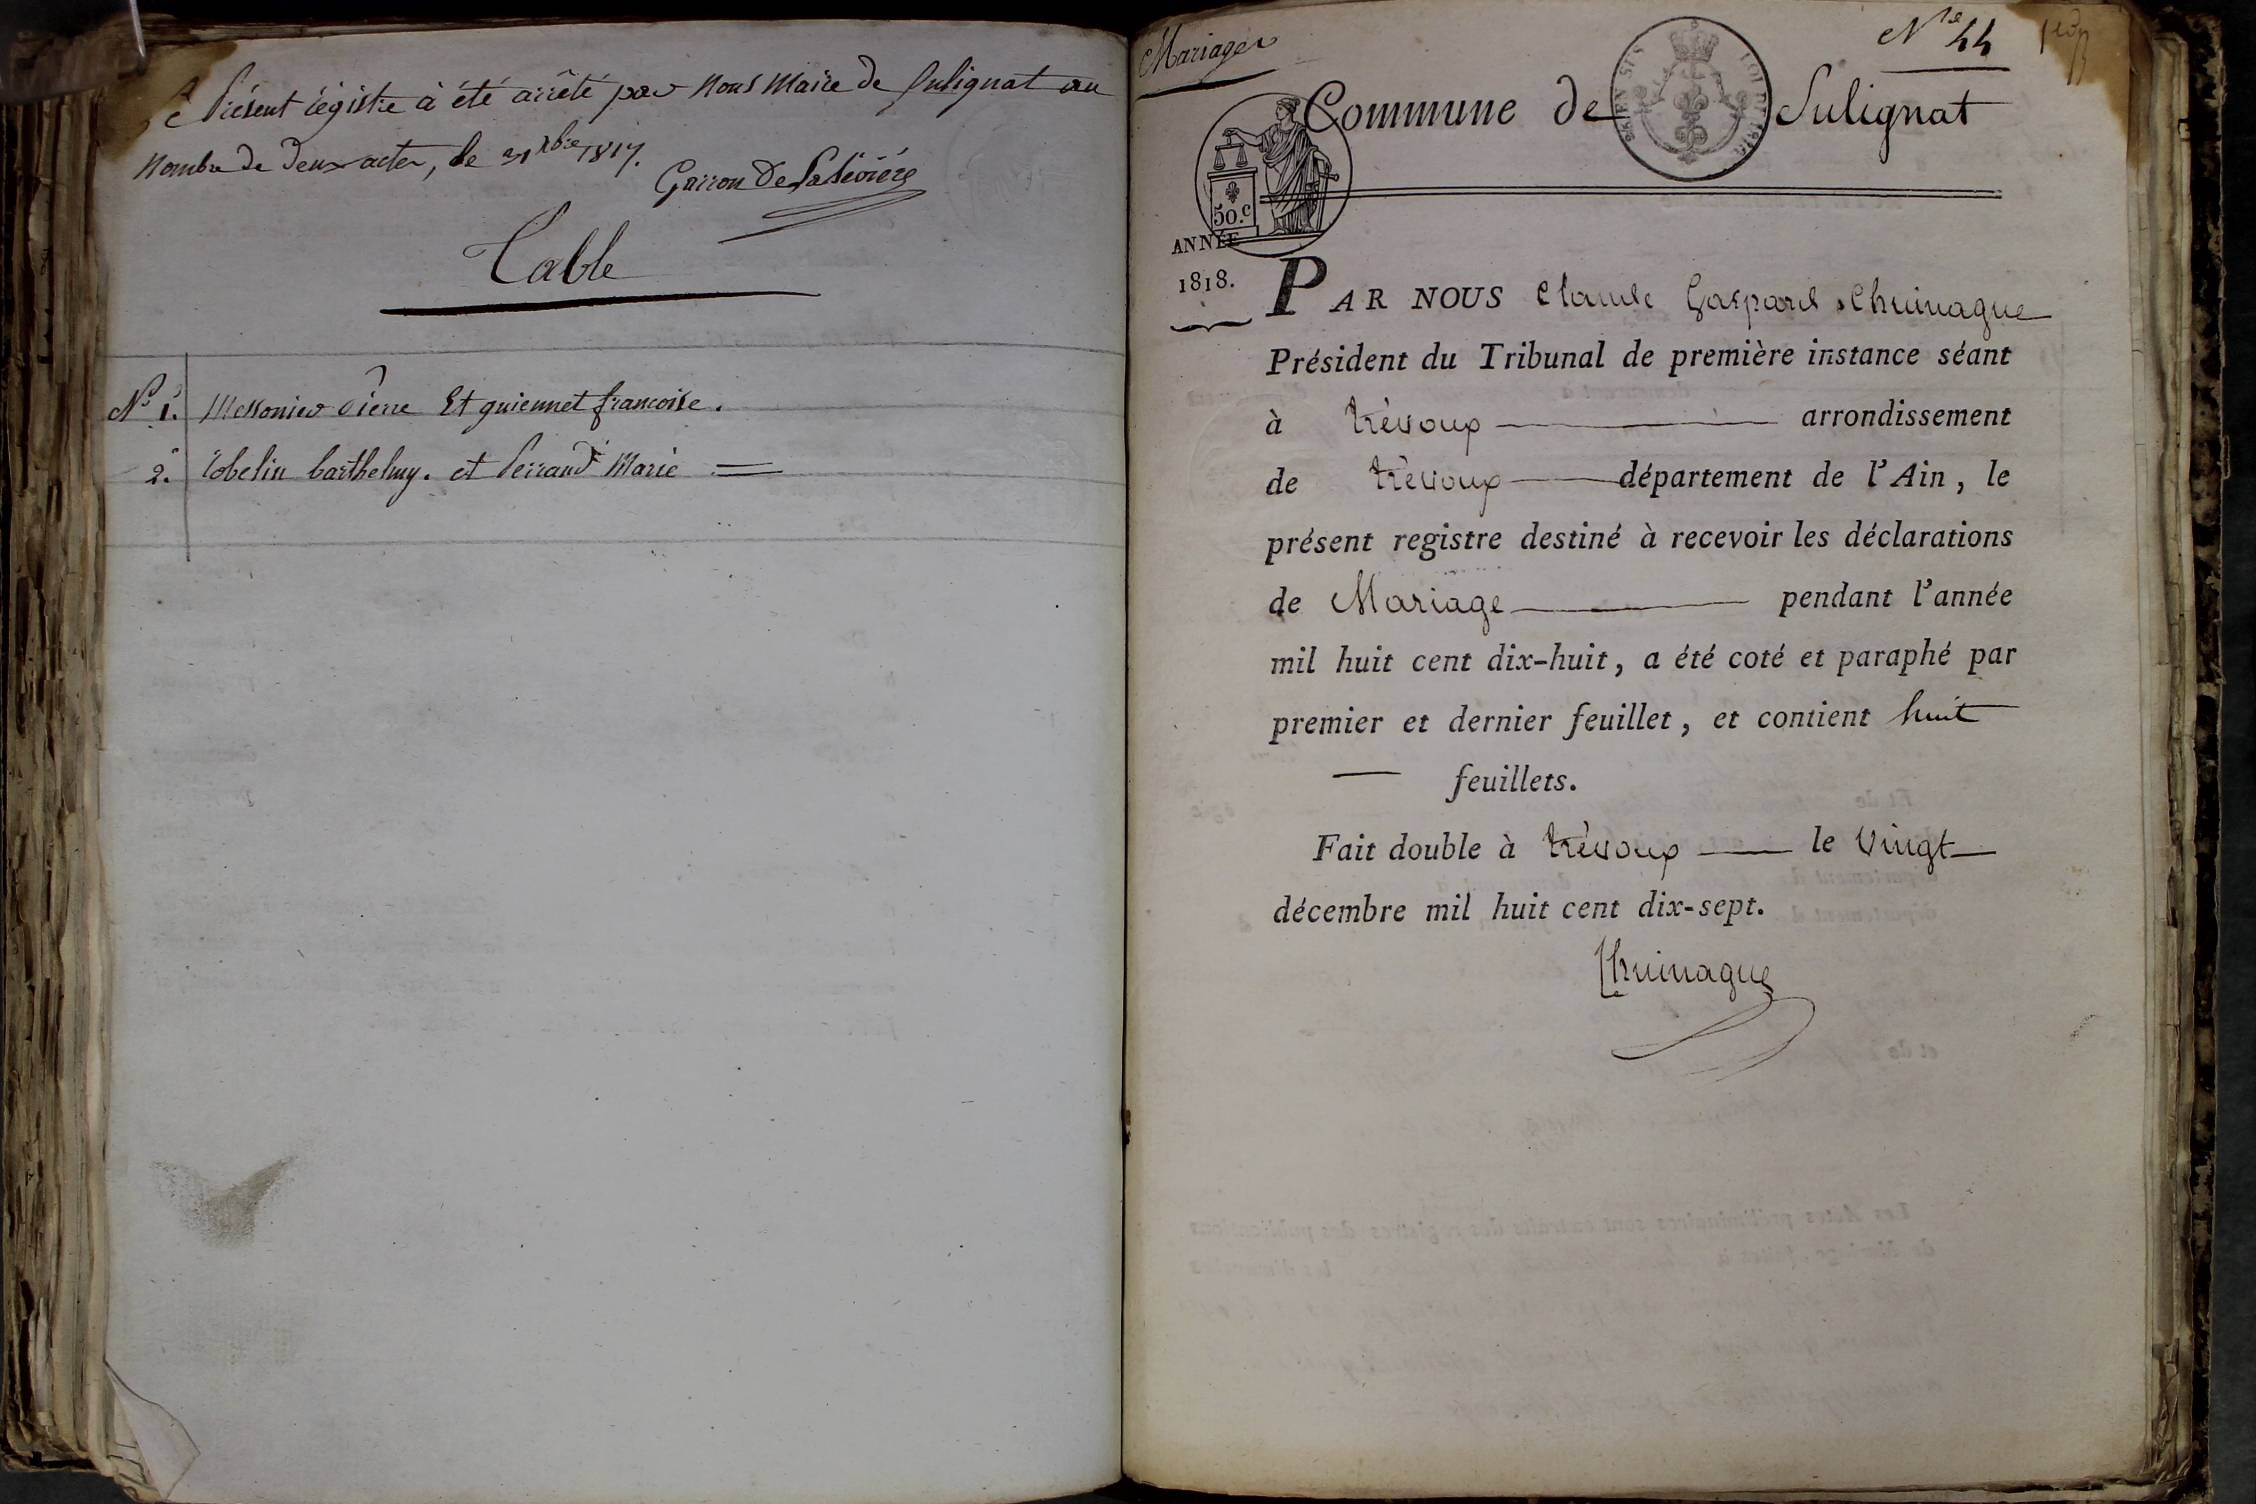 Le Présent régistre à été arrêté par Nous Maire de Sulignat au
Nombre de deux actes, le 31 Xbre 1817.
Garron De Labévière
Table
No 1. Messonier Pierre Et guiennet francoise.
2. robelin barthelmy. et Perraud Marie
Mariages
No 44
Commune de Sulignat
50.c
ANNÉE
1818.
PAR NOUS Claude Gaspard Chuinague
Président du Tribunal de première instance séant
à trévoux arrondissement
de trévoux département de l'Ain, le
présent registre destiné à recevoir les déclarations
de Mariage pendant l'année
mil huit cent dix-huit, a été coté et paraphé par
premier et dernier feuillet, et contient huit
feuillets.
Fait double à trévoux le vingt
décembre mil huit cent dix-sept.
Chuinague